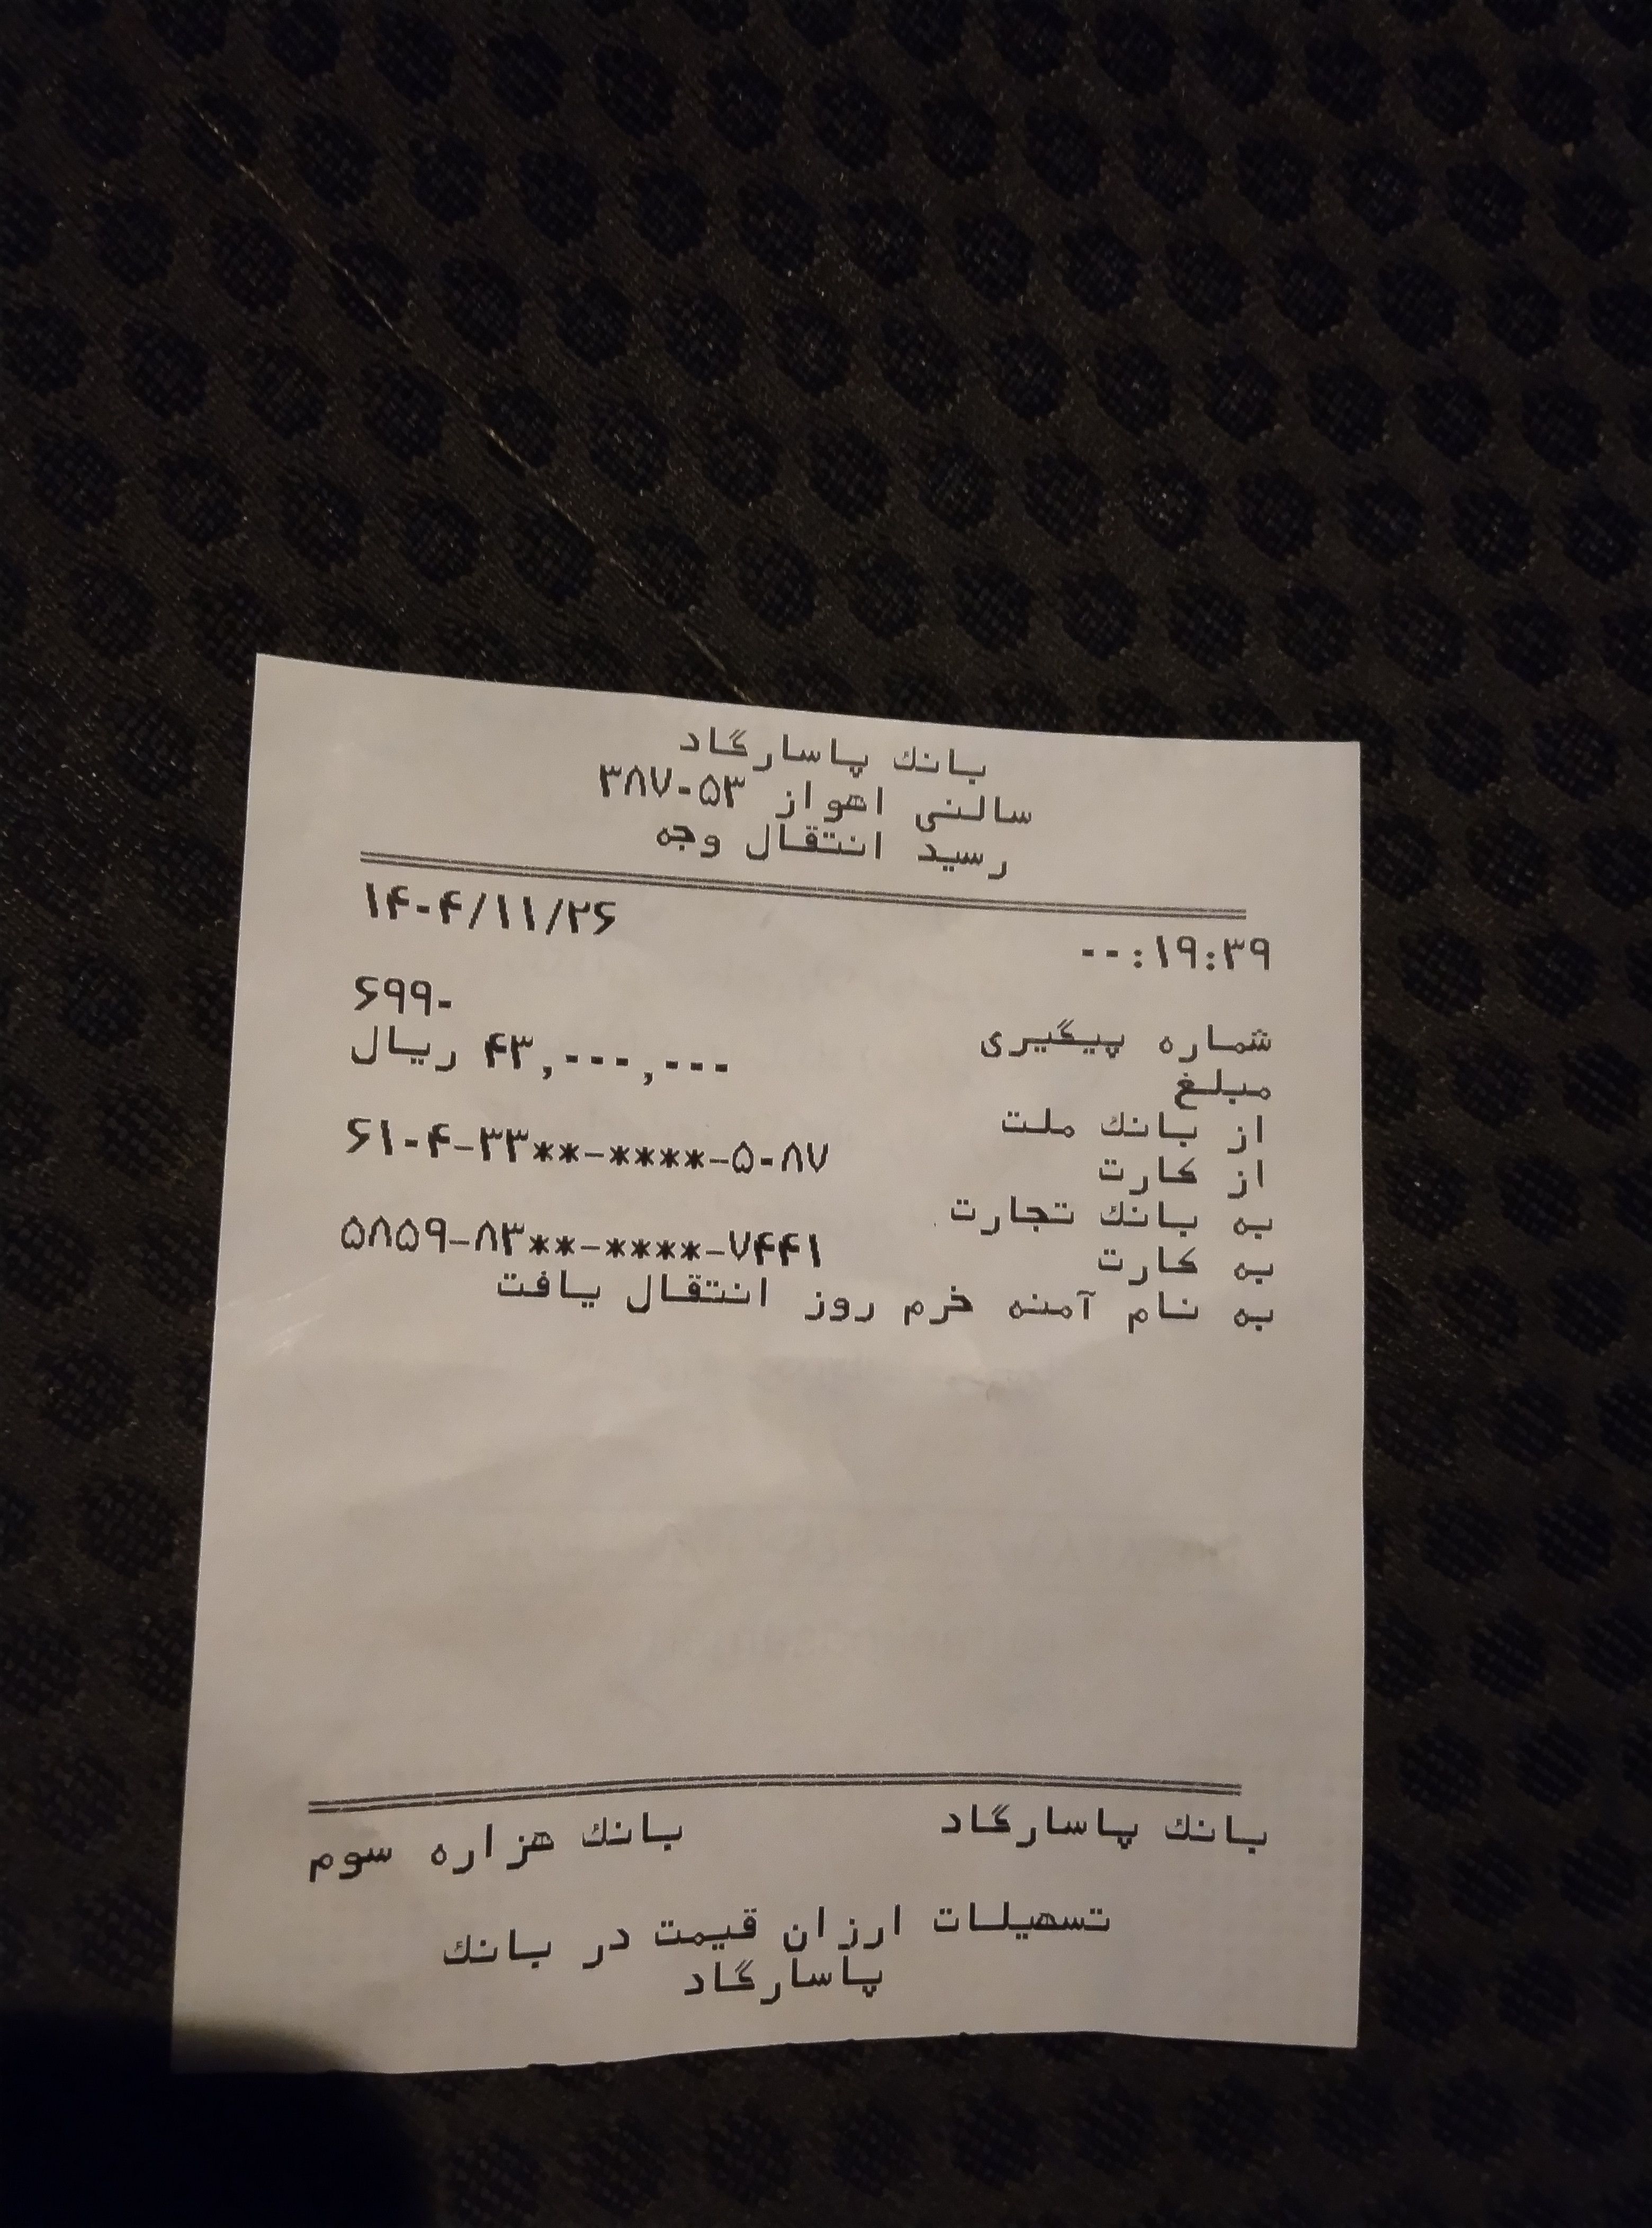 بانك پاسارگاد
سالنی اهواز ۳۸۷۰۵۳
رسید انتقال وجه
۱۴۰۴/۱۱/۲۶
۰۰:۱۹:۳۹
شماره پیگیری ۶۹۹۰
مبلغ ۴۳,۰۰۰,۰۰۰ ریال
از بانك ملت
از کارت ۶۱۰۴-۳۳**-****-۵۰۸۷
به بانك تجارت
به کارت ۵۸۵۹-۸۳**-****-۷۴۴۱
به نام آمنه خرم روز انتقال یافت
بانك پاسارگاد بانك هزاره سوم
تسهیلات ارزان قیمت در بانك
پاسارگاد